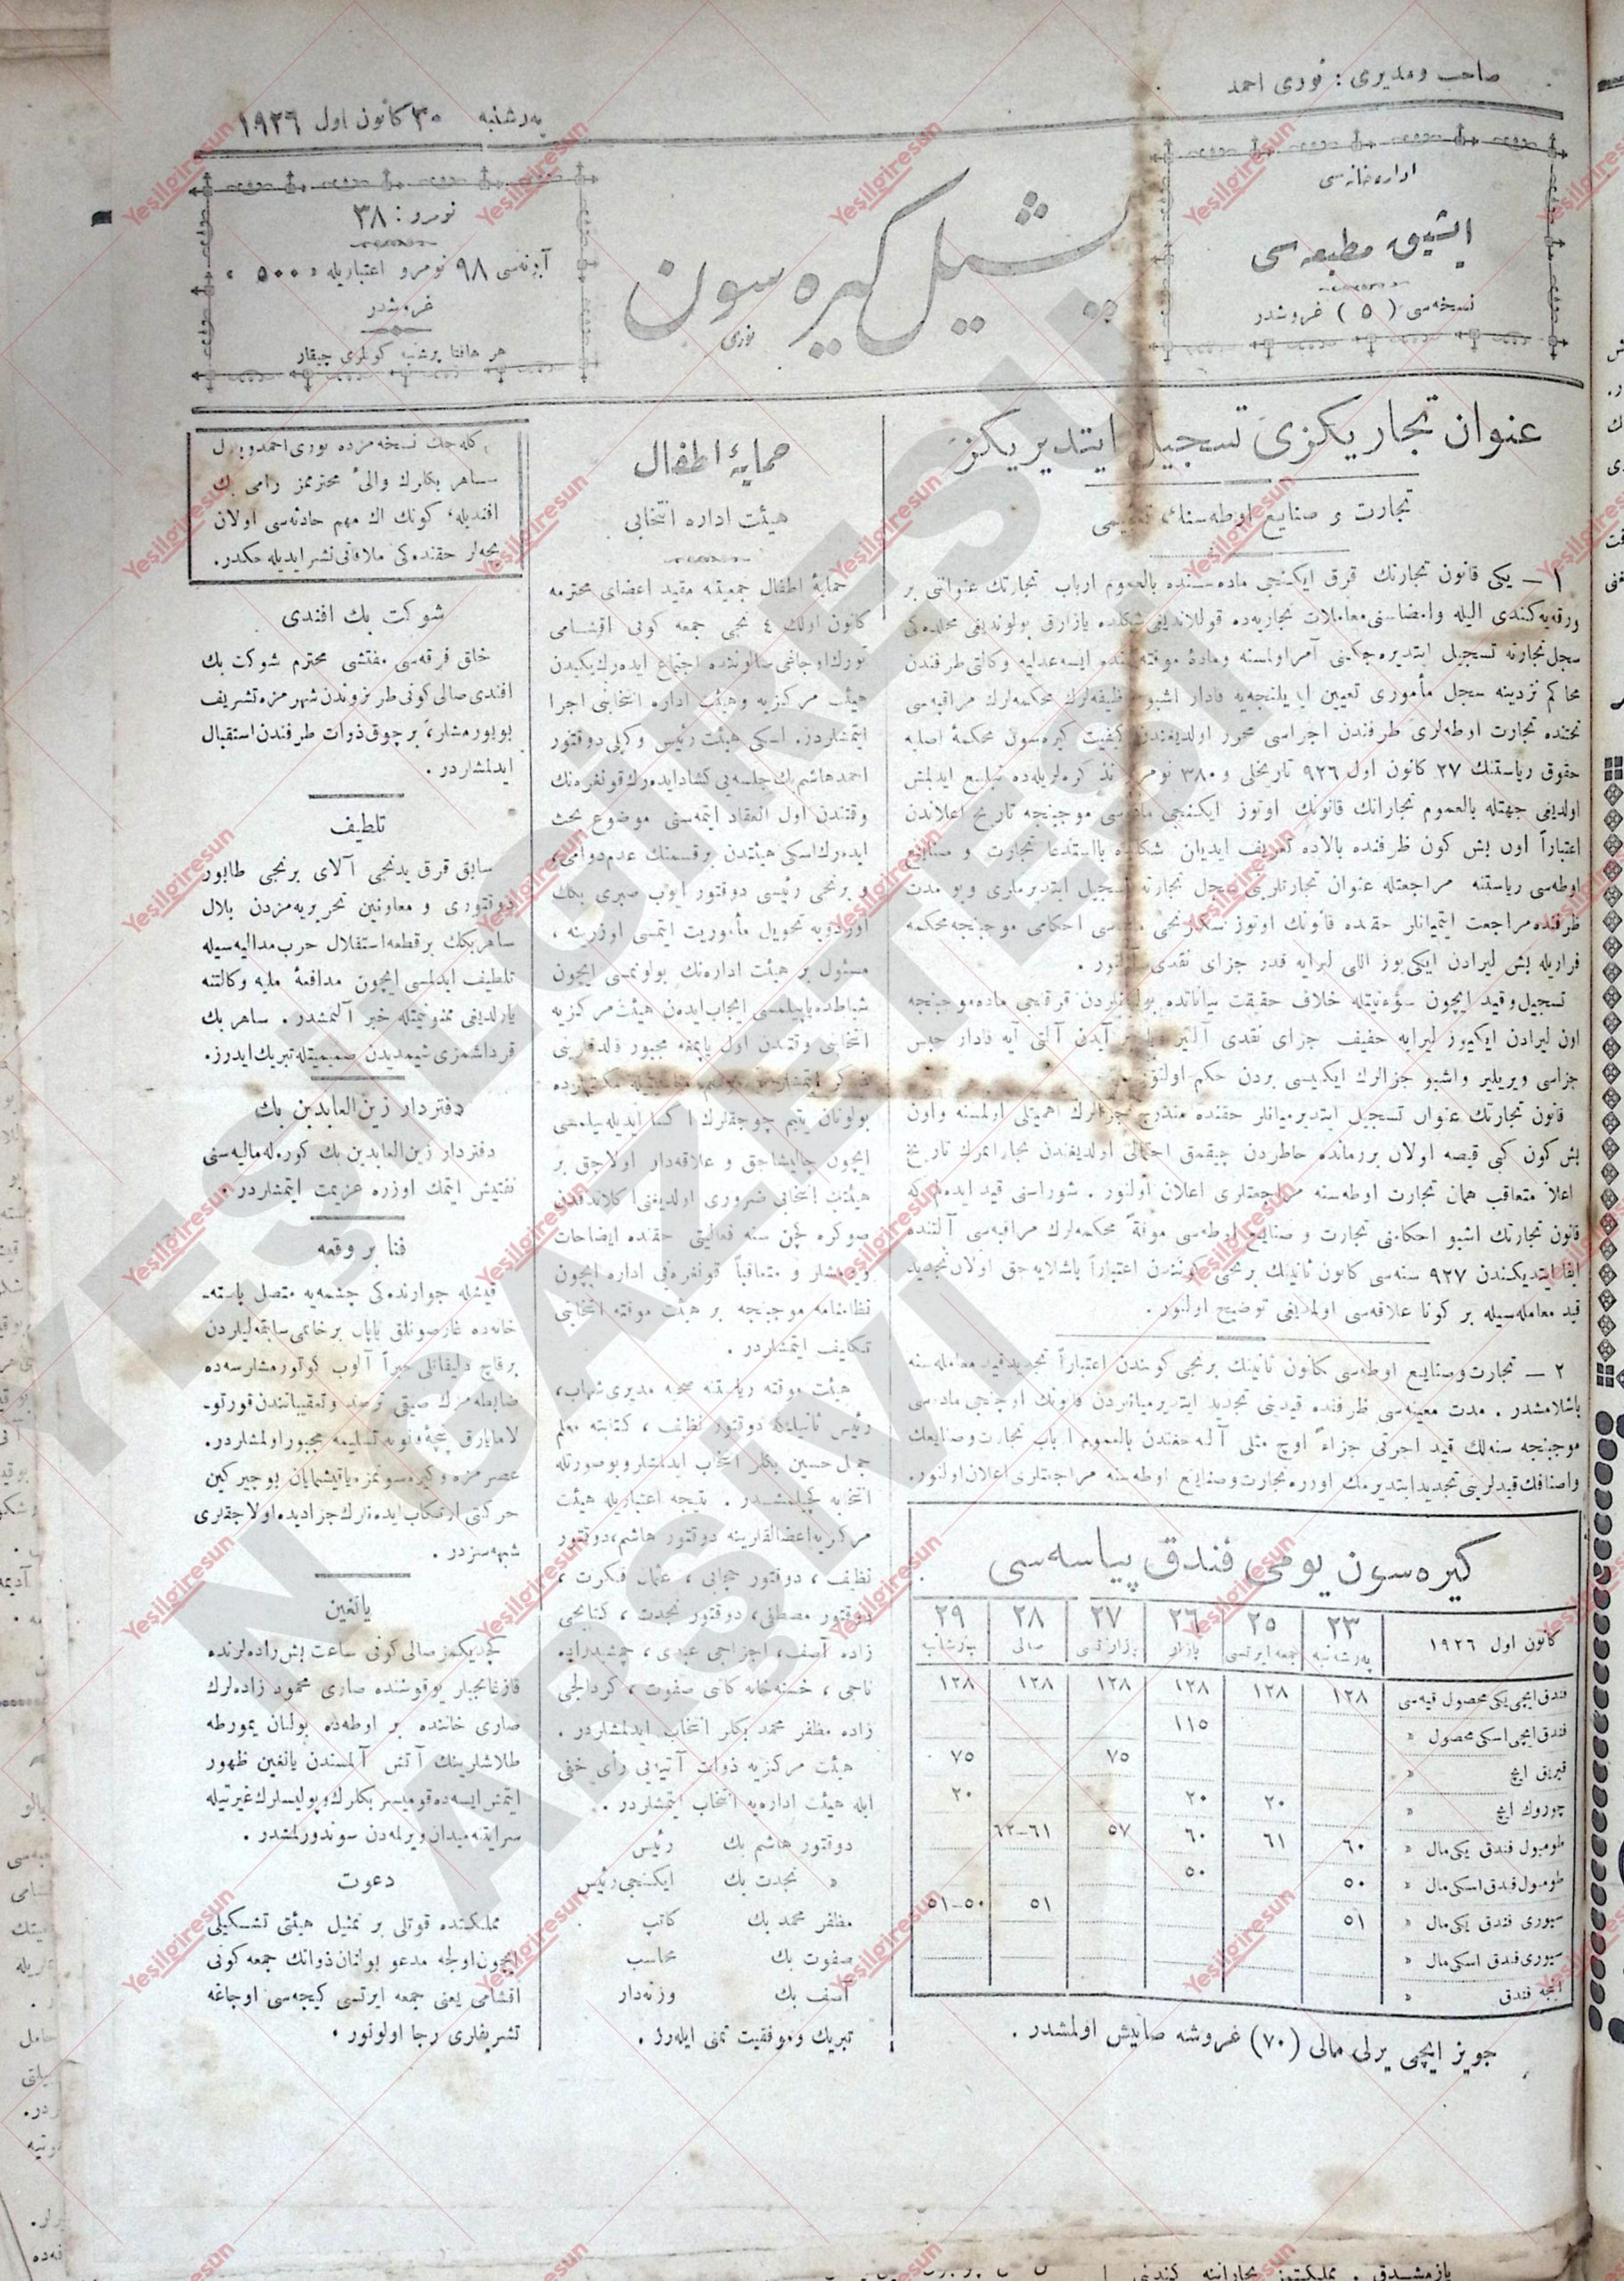 صاحب ومديرى : نورى احمد
پنجشنبه ٣٠ كانون اول ١٩٢٦
اداره خانه سى
ايشيق مطبعه سى
نسخه سى ( ٥ ) غروشدر
يشيل كيره سون
نورى
نومرو : ٣٨
آبونه سى ٩٨ نومرو اعتباريله « ٥٠٠ »
غروشدر
هر هافتا پرشنبه كونلرى چيقار
عنوان تجاريكزى تسجيل ايتديريكز
تجارت و صنايع اوطه سنك
١ — يكى قانون تجارتك قرق ايكنجى ماده سنده بالعموم ارباب تجارتك عنوانى بر
ورقه يه كندى اليله وامضاسنى معاملات تجاريه ده قوللانديغى شكلده يازارق بولونديغى محلده كى
سجل تجارته تسجيل ايتديره جكنى آمر اولمسنه ومادهٔ موقته سنده ايسه عدليه وكالتى طرفندن
محاكم نزدينه سجل مأمورى تعيين ايديلنجه يه قادار اشبو وظيفه لرك محكمه لرك مراقبه سى
تحتنده تجارت اوطه لرى طرفندن اجراسى محرر اولديغندن كيفيت كيره سون محكمهٔ اصليه
حقوق رياستنك ٢٧ كانون اول ٩٢٦ تاريخلى و ٣٨٠ نومرو تذكره لريله ده تبليغ ايدلمش
اولديغى جهتله بالعموم تجارانك قانونك اوتوز ايكنجى ماده سى موجبنجه تاريخ اعلاندن
اعتباراً اون بش كون ظرفنده بالاده تعريف ايديلن شكلده بااستدعا تجارت و صنايع
اوطه سى رياستنه مراجعتله عنوان تجارتلرينى سجل تجارته تسجيل ايتديرملرى وبو مدت
ظرفنده مراجعت ايتميانلر حقنده قانونك اوتوز سكزنجى ماده سى احكامى موجبنجه محكمه
قراريله بش ليرادن ايكى يوز اللى ليرايه قدر جزاى نقدى آلنور .
تسجيل وقيد ايچون سؤ نيتله خلاف حقيقت بياناتده بولونانلردن قرقنجى ماده موجبنجه
اون ليرادن ايكيوز ليرايه خفيف جزاى نقدى آلنير يا بر آيدن آلتى آيه قادار حبس
جزاسى ويريلير واشبو جزالرك ايكيسى بردن حكم اولنور
قانون تجارتك عنوان تسجيل ايتديرميانلر حقنده مندرج جزالرك اهميتلى اولمسنه واون
بش كون كبى قيصه اولان بر زمانده خاطردن چيقمق احتمالى اولديغندن تجارانمزك تاريخ
اعلانى متعاقب همان تجارت اوطه سنه مراجعتلرى اعلان اولنور . شوراسنى قيد ايده لم كه
قانون تجارتك اشبو احكامنى تجارت و صنايع اوطه سى موقةً محكمه لرك مراقبه سى آلتنده
ايفا ايتديكندن ٩٢٧ سنه سى كانون ثانينك برنجى كونندن اعتباراً باشلايه جق اولان تجديد
قيد معامله سيله بر كونا علاقه سى اولمديغى توضيح اولنور .
٢ — تجارت وصنايع اوطه سى كانون ثانينك برنجى كونندن اعتباراً تجديد قيد معامله سنه
باشلامشدر . مدت معينه سى ظرفنده قيدينى تجديد ايتديرميانلردن قانونك اوچنجى ماده سى
موجبنجه سنه لك قيد اجرتى جزاءً اوچ مثلى آله جغندن بالعموم ارباب تجارت وصنايعك
واصنافك قيدلرينى تجديد ايتديرمك اوزره تجارت وصنايع اوطه سنه مراجعتلرى اعلان اولنور.
كيره سون يومى فندق پياسه سى
كانون اول ١٩٢٦ ٢٣ پنجشنبه ٢٥ جمعه ايرتسى ٢٦ بازار ٢٧ بازارارتسى ٢٨ صالى ٢٩ چهارشنبه
فندق ايچى يكى محصول قيه سى ١٢٨ ١٢٨ ١٢٨ ١٢٨ ١٢٨ ١٢٨
فندق ايچى اسكى محصول « ١١٥
قيريق ايچ « ٧٥ ٧٥
چوروك ايچ « ٢٠ ٢٠ ٢٠
طومبول فندق يكى مال « ٦٠ ٦١ ٦٠ ٥٧ ٦١-٦٢
طومبول فندق اسكى مال « ٥٠ ٥٠
سيورى فندق يكى مال « ٥١ ٥١ ٥٠-٥١
سيورى فندق اسكى مال «
ايجه فندق «
جويز ايچى يرلى مالى (٧٠) غروشه صاتيش اولمشدر .
حمايۀ اطفال
هيئت اداره انتخابى
حمايۀ اطفال جمعيتنه مقيد اعضاى محترمه
كانون اولك ٤ نجى جمعه كونى اقشامى
تورك اوجاغى صالوننده اجتماع ايده رك يكيدن
هيئت مركزيه وهيئت اداره انتخابى اجرا
ايتمشلردر. اسكى هيئت رئيس وكيلى دوقتور
احمد هاشم بك جلسه يى كشاد ايده رك قونغره نك
وقتندن اول انعقاد ايتمه سنى موضوع بحث
ايده رك اسكى هيئتدن بر قسمنك عدم دوامى ،
و برنجى رئيسى دوقتور ايوب صبرى بك
اوردويه تحويل مأموريت ايتمسى اوزرينه ،
مسئول بر هيئت اداره نك بولونمسى ايچون
شباطده ياپيلمسى ايجاب ايدن هيئت مركزيه
انتخابنى وقتندن اول ياپمغه مجبور قالدقلرينى
بولونان يتيم چوجقلرك ا كسا ايديله بيلمسى
ايچون چاليشاجق و علاقه دار اولاجق بر
هيئت انتخابى ضرورى اولديغنى اكلاتدقدن
صوكره كچن سنه فعاليتى حقنده ايضاحات
ويرمشلر و متعاقباً قونغره نى اداره ايچون
نظامنامه موجبنجه بر هيئت موقته انتخابنى
تكليف ايتمشلردر .
هيئت موقته رياستنه صحيه مديرى شهاب،
رئيس ثانيلكه دوقتور نظيف ، كتابته معلم
جمال حسين بكلر انتخاب ايدلمشلر وبو صورتله
انتخابه كچيلمشدر . نتيجه اعتباريله هيئت
مركزيه اعضالقلرينه دوقتور هاشم، دوقتور
نظيف ، دوقتور حجابى ، عثمان فكرت ،
دوقتور مصطفى ، دوقتور نجدت ، كتابجى
زاده آصف، اجزاجى عبدى ، چمشيدزاده
ناجى ، خسته خانه كاتبى صفوت ، كردالجى
زاده مظفر محمد بكلر انتخاب ايدلمشلردر .
هيئت مركزيه ذوات آتيه يى رأى خفى
ايله هيئت اداره يه انتخاب ايتمشلردر .
دوقتور هاشم بك رئيس
« نجدت بك ايكنجى رئيس
مظفر محمد بك كاتب
صفوت بك محاسب
آصف بك وزنه دار
تبريك وموفقيت تمنى ايله رز .
كله جك نسخه مزده نورى احمد وبلال
ساهر بكلرك والئ محترممز رامى بك
افنديله، كونك اك مهم حادثه سى اولان
بچه لر حقنده كى ملاقاتى نشر ايديله جكدر.
شوكت بك افندى
خلق فرقه سى مفتشى محترم شوكت بك
افندى صالى كونى طربزوندن شهرمزه تشريف
بويورمشلر، بر چوق ذوات طرفندن استقبال
ايدلمشلردر .
تلطيف
سابق قرق يدنجى آلاى برنجى طابور
دوقتورى و معاونين تحريريه مزدن بلال
ساهر بكك بر قطعه استقلال حرب مداليه سيله
تلطيف ايدلمسى ايچون مدافعهٔ مليه وكالتنه
يازلديغى ممنونيتله خبر آلنمشدر . ساهر بك
قرداشمزى شيمديدن صميميتله تبريك ايدرز.
دفتردار زين العابدين بك
دفتردار زين العابدين بك كوره له ماليه سنى
تفتيش ايتمك اوزره عزيمت ايتمشلردر .
فنا بر وقعه
قيشله جوارنده كى چشمه يه متصل پاسته-
خانه ده غارصونلق ياپان بر خانمى سابقه ليلردن
بر قاچ دليقانلى جبراً آلوب كوتورمشلرسه ده
ضابطه مزك صيقى ترصد و تعقيباتندن قورتو-
لامايارق پنچهٔ قانونه تسليمه مجبور اولمشلردر.
عصرمزه و كيره سونمزه ياقيشمايان بو چيركين
حركتى ارتكاب ايده نلرك جزاديده اولاجقلرى
شبهه سزدر .
يانغين
كچديكمز صالى كونى ساعت بش راده لرنده
قازغانجيلر يوقوشنده صارى محمود زاده لرك
صارى خاننده بر اوطه ده بولنان يمورطه
طلاشلرينك آتش آلمسندن يانغين ظهور
ايتمش ايسه ده قوميسر بكلرك وپوليسلرك غيرتيله
سرايتنه ميدان ويرلمه دن سوندورلمشدر .
دعوت
مملكتده قوتلى بر تمثيل هيئتى تشكيلى
ايچون اولجه مدعو بولنان ذواتك جمعه كونى
اقشامى يعنى جمعه ايرتسى كيجه سى اوجاغه
تشريفلرى رجا اولونور .
YESILGIRESUN
GAZETESI
ARSIVI
Yesilgiresun